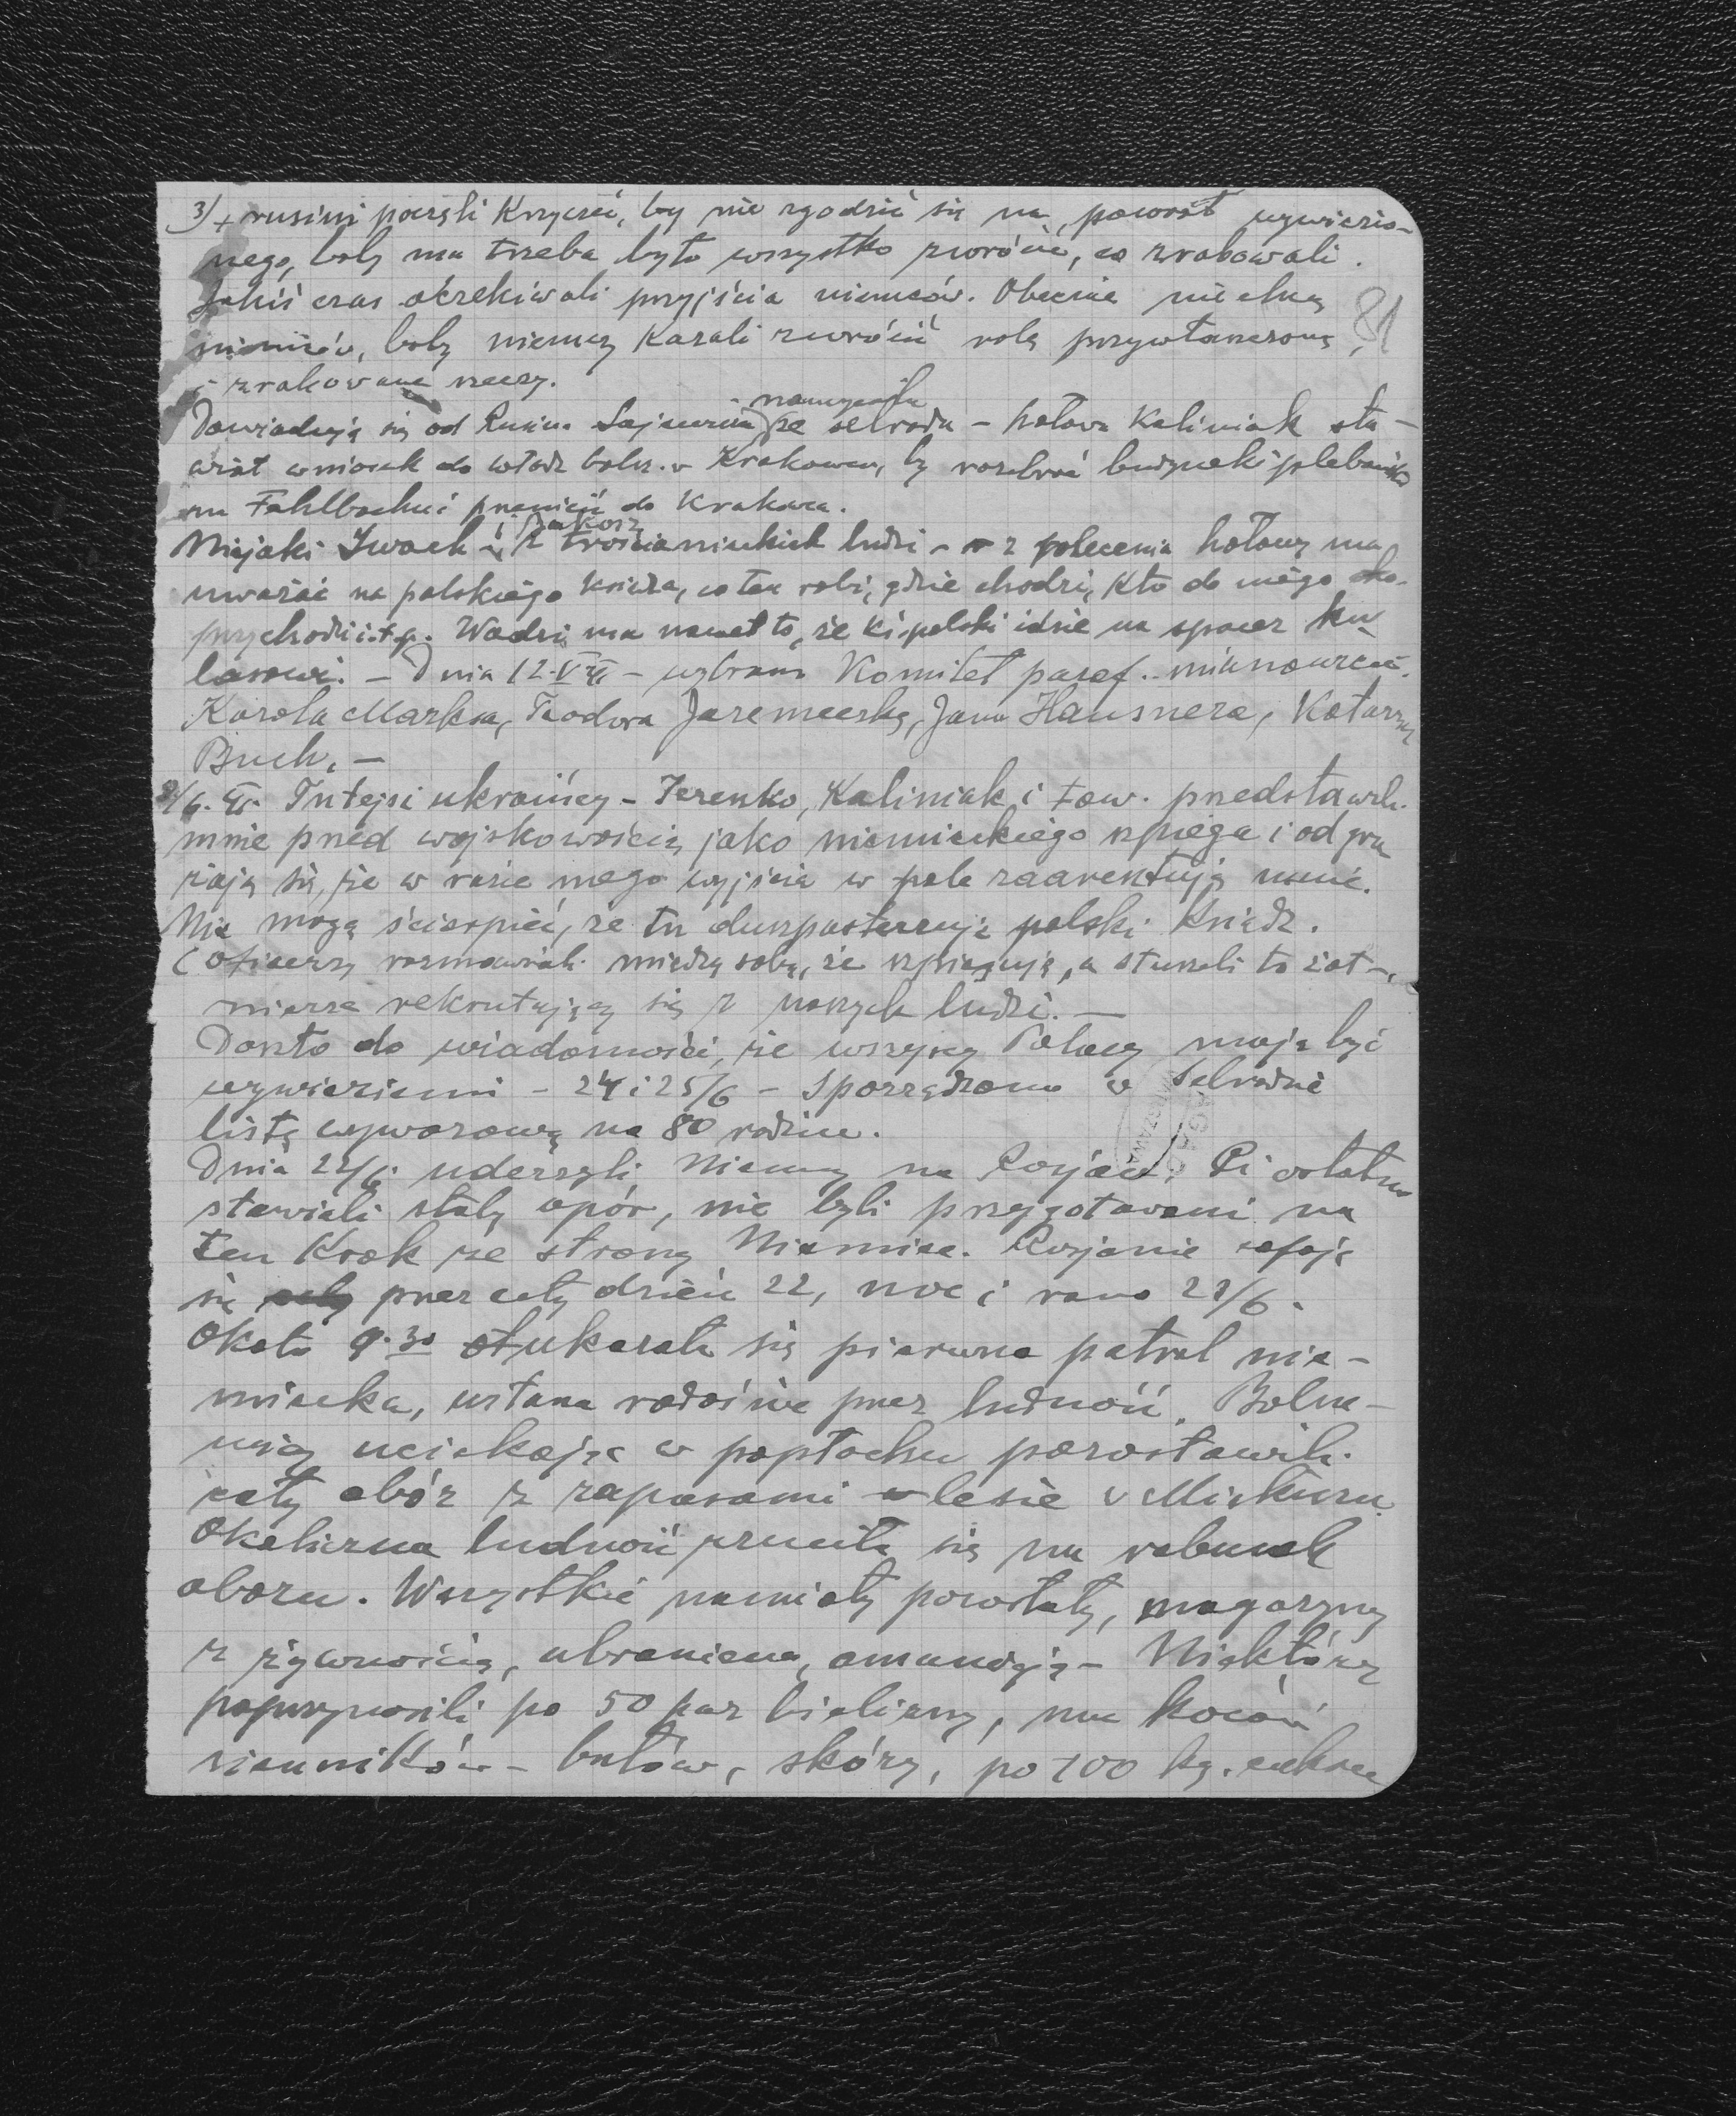 3) + rusini poczęli krzyczeć, by nie zgodzić się na powrót wywiezio-
nego, boby mu trzeba było wszystko zwrócić, co zrabowali.
Jakiś czas oczekiwali przyjścia niemców. Obecnie nie chcą
niemców, boby niemcy kazali zwrócić rolę przywłaszczoną
i zrabowane rzeczy.
81
Dowiaduję się od Rusina że selrada - hołowa Kaliniak sta-
wiał wniosek do władz bolsz. w Krakowcu, by rozebrać budynek plebański
na Fehlbachu i przenieść do Krakowca.
Niejaki Iwach i z trościanieckich ludzi - z polecenia hołowy ma
uważać na polskiego księdza, co ten robi, gdzie chodzi, kto do niego
przychodzi i t. p. Wadzi mu nawet to, że ks. polski idzie na spacer ku
lasowi. - Dnia 12.VI - wybrano Komitet paraf. mianowicie
Karola Marksa, Teodora Jaremecską, Jana Hausnera, Katarzynę
Buch. -
/6. Tutejsi ukraińcy - Jerenko, Kaliniak i tow. przedstawili
mnie przed wojskowością jako niemieckiego szpiega i odgra
żają się, że w razie mego wyjścia w pole zaaresztują mnie.
Nie mogą ścierpieć, że tu duszpasterzuje polski Ksiądz.
(oficerzy rozmawiali między sobą, że szpieguję, a słyszeli to żoł-
nierze rekrutujący się z naszych ludzi. -
Doszło do wiadomości, że wszyscy Polacy mają być
wywiezieni - 24 i 25/6 - Sporządzono w Selradzie
listę wywozową na 80 rodzin.
Dnia 22/6. uderzyli Niemcy na Rosjan. Ci ostatni
stawiali słaby opór, nie byli przygotowani na
ten krok ze strony Niemiec. Rosjanie cofają
się przez cały dzień 22, noc i rano 23/6.
Około 9.30 ukazała się pierwsza patrol nie-
miecka, witana radośnie przez ludność. Bolsze-
wicy uciekając w popłochu pozostawili
cały obóz z zapasami w lesie
Okoliczna ludność rzuciła się na rabunek
obozu. Wszystkie namioty powstały, magazyny
z żywnością, ubraniem, amunicją - Niektórzy
poprzynosili po 50 par bielizny, koców
sienników - butów, skóry, po 100 kg. cukru